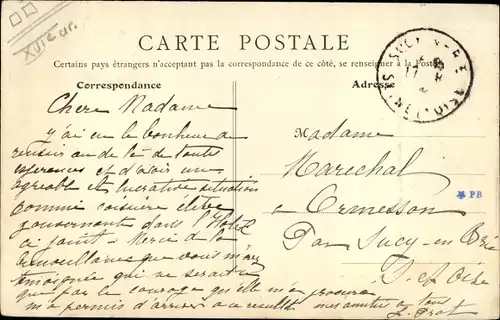 XVI eur.
CARTE POSTALE
Certains pays étrangers n'acceptant pas la correspondance de ce côté, se renseigner à la Poste
Correspondance
Adresse
Chere Madame
y ai eu le bonheur de
reussir au de la de toutes
esperences et d'avoir une
agréable et lucrative situation
comme caissière
gouvernante dans l'Hotel
ci joint - Merci de la
que vous m'avez
temoignée qui ne serait
que par le courage qu'elle m'a
m'a permis d'arriver a ce resultat mes amitiés a tous
Madame
Marechal
a Ormesson
Par Sucy-en-Brie
S. et Oise
SUCY
17
PB